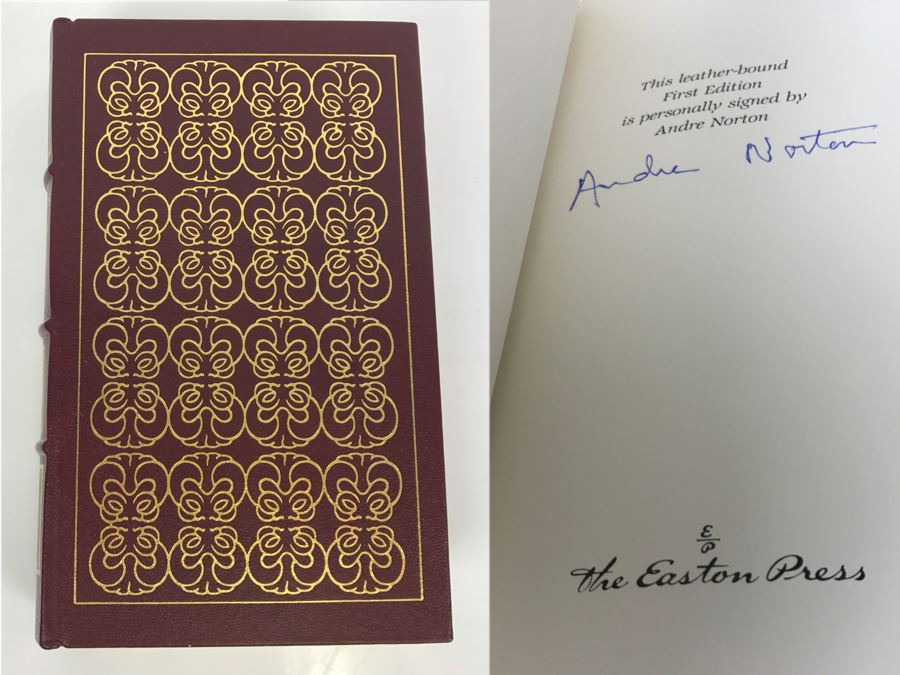 This leather-bound
First Edition
is personally signed by
Andre Norton
Andre Norton
E
P
the Easton Press